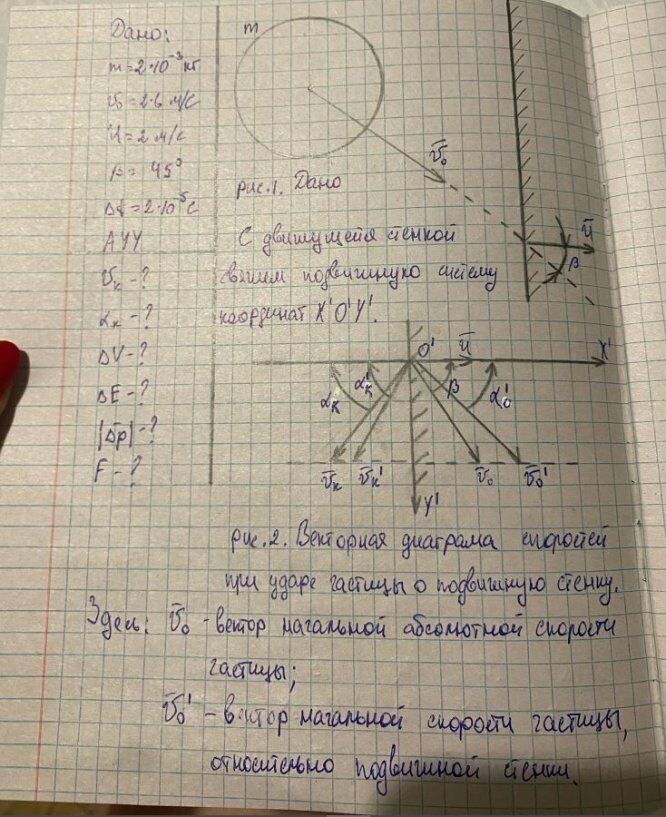 Дано:
m = 2·10⁻³ кг
v₀ = 2.6 м/с
U = 2 м/с
β = 45°
Δt = 2·10⁻⁵ с
АУУ
v̄к - ?
αк - ?
ΔV - ?
ΔE - ?
|Δp̄| - ?
F - ?
m
v̄₀
рис.1. Дано
ū
β
С движущейся стенкой
свяжем подвижную систему
координат X'O'Y'.
O'
ū
X'
αк
αк'
β
α₀'
v̄к
v̄к'
v̄₀
v̄₀'
Y'
рис. 2. Векторная диаграма скоростей
при ударе частицы о подвижную стенку.
Здесь: v̄₀ - вектор начальной абсолютной скорости
частицы;
v̄₀' - вектор начальной скорости частицы,
относительно подвижной стенки.